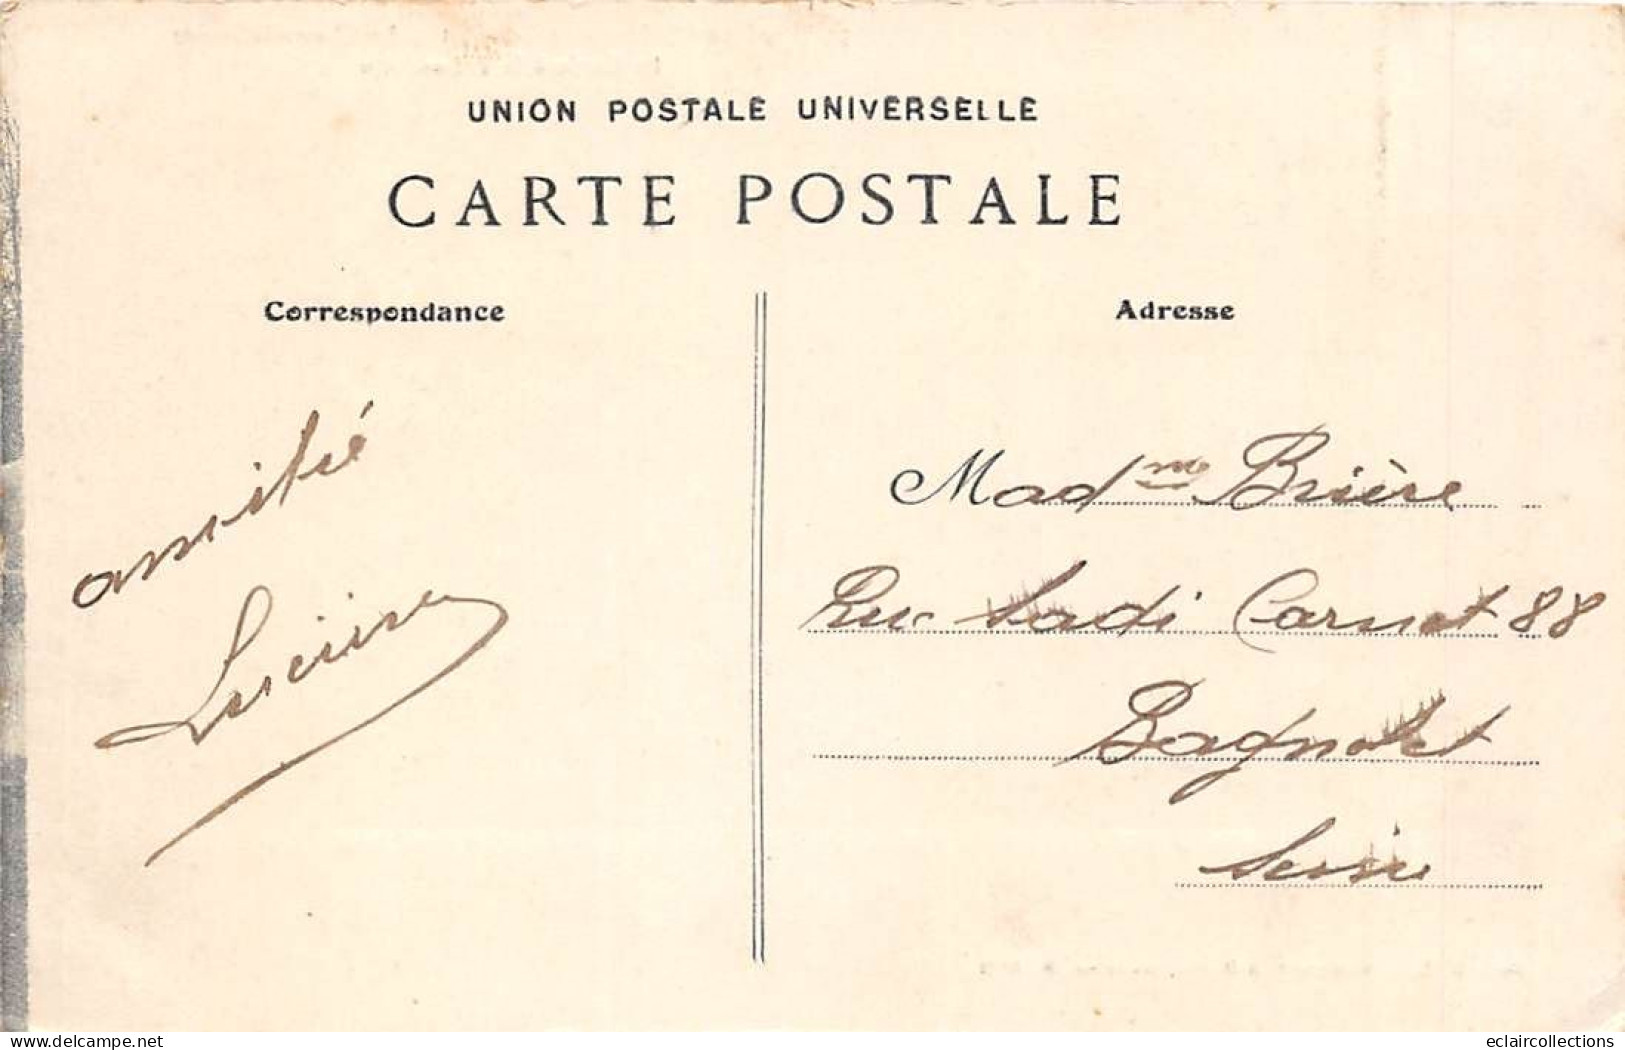 UNION POSTALE UNIVERSELLE
CARTE POSTALE
Correspondance
Adresse
amitié
Lucien
Madme Brière
Rue Sadi Carnot 88
Bagnolet
Seine
delcampe.net
eclaircollections